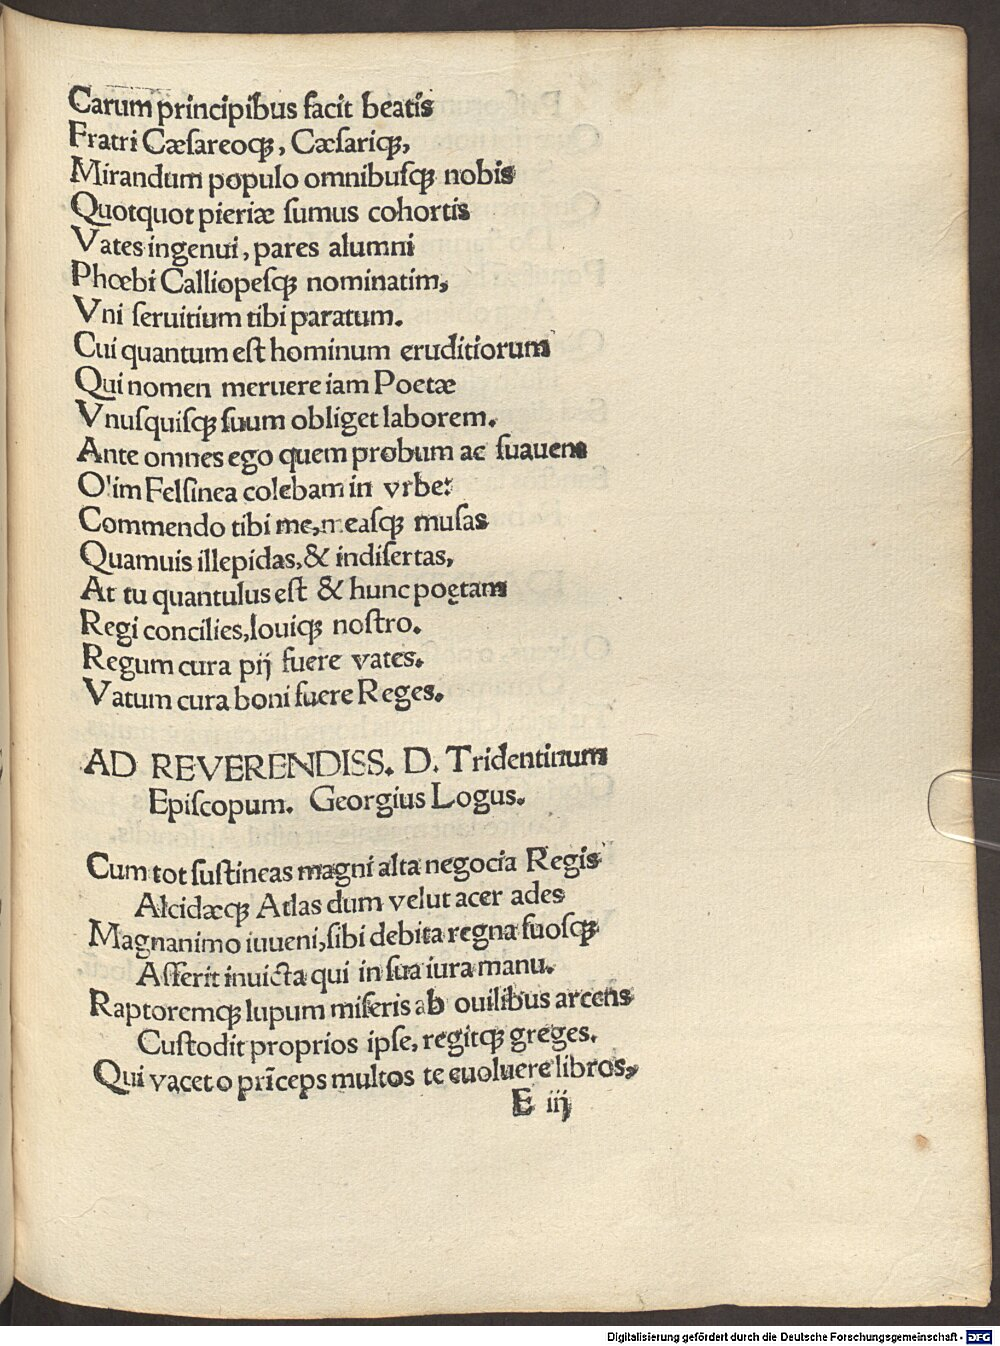 Carum principibus facit beatis
Fratri Cæsareoqꝫ, Cæsariqꝫ,
Mirandum populo omnibuſqꝫ nobis
Quotquot pieriæ ſumus cohortis
Vates ingenui, pares alumni
Phœbi Calliopeſqꝫ nominatim,
Vni ſeruitium tibi paratum.
Cui quantum eſt hominum eruditiorum
Qui nomen meruere iam Poetæ
Vnuſquiſqꝫ ſuum obliget laborem.
Ante omnes ego quem probum ac ſuauem
Olim Felſinea colebam in vrbe:
Commendo tibi me, meaſqꝫ muſas
Quamuis illepidas, & indiſertas,
At tu quantulus eſt & hunc poętam
Regi concilies, Iouiqꝫ noſtro.
Regum cura pij fuere vates.
Vatum cura boni fuere Reges.
AD REVERENDISS. D. Tridentinum
Epiſcopum. Georgius Logus.
Cum tot ſuſtineas magni alta negocia Regis
Alcidæqꝫ Atlas dum velut acer ades
Magnanimo iuueni, ſibi debita regna ſuoſqꝫ
Aſſerit inuicta qui in ſua iura manu.
Raptoremqꝫ lupum miſeris ab ouilibus arcens
Cuſtodit proprios ipſe, regitqꝫ greges.
Qui vacet o prīceps multos te euoluere libros,
E iij
Digitalisierung gefördert durch die Deutsche Forschungsgemeinschaft - DFG